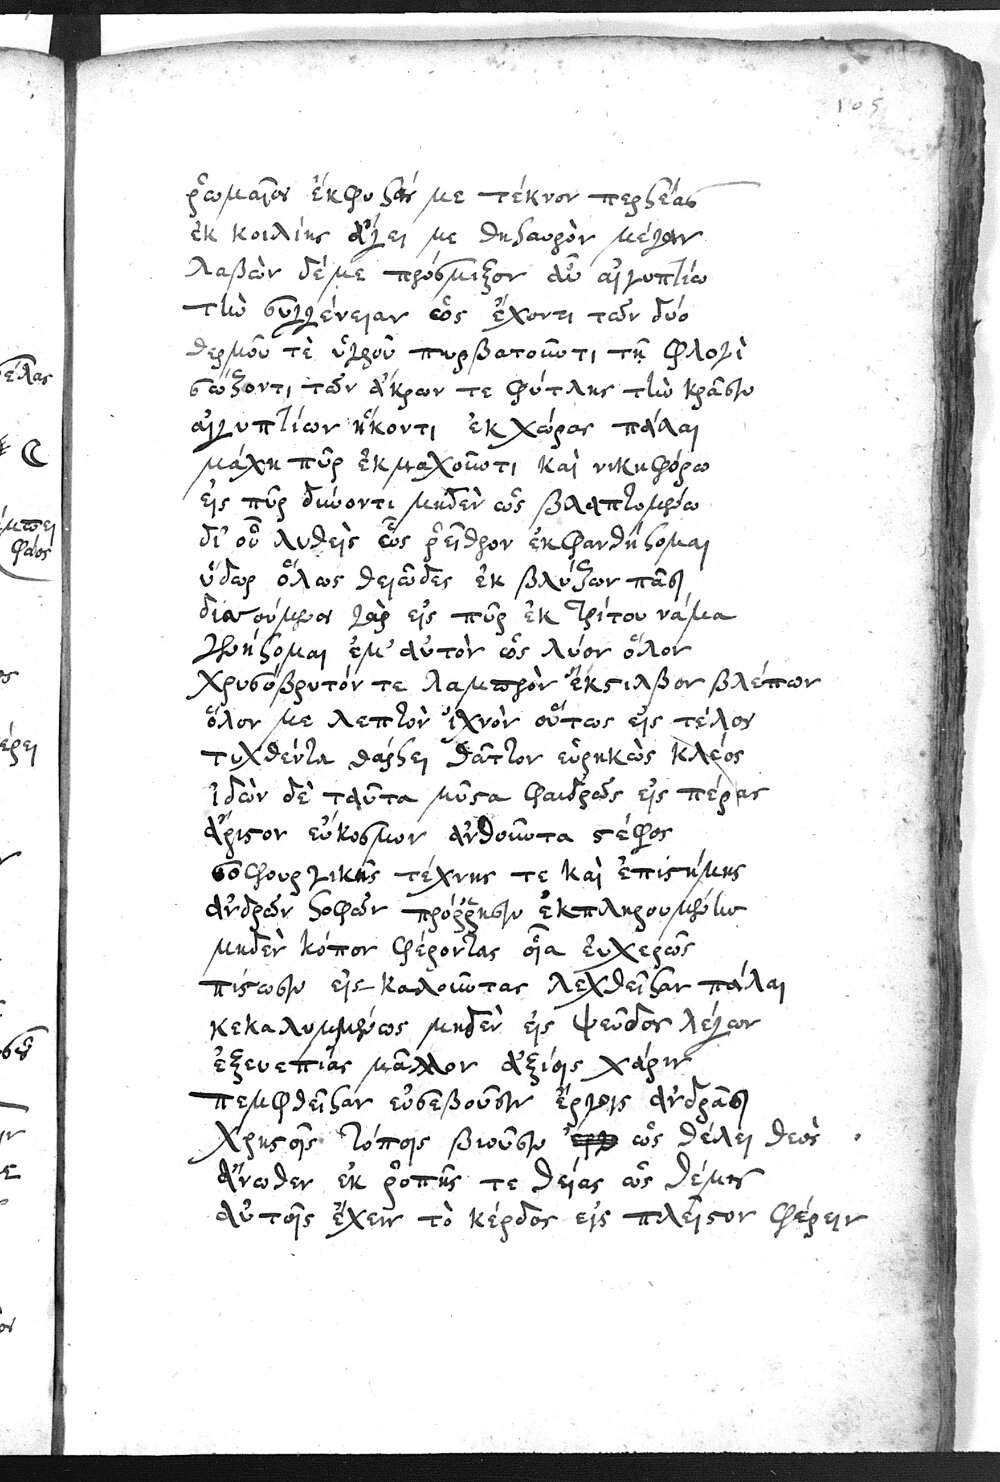 105
ῥωμαῖον ἐκφυσᾷς με τέκνον περσέας
ἐκ κοιλίης ἄγει με θησαυρὸν μέγαν
λαβὼν δέ με πρόσμιξον αὖ αἰγυπτίω
τὴν συγγένειαν ὡς ἔχοντι τῶν δύο
θερμοῦ τὲ ὑγροῦ πυρβατοῦντι τῆ φλογὶ
σώζοντι τῶν ἄκρων τε φύτλης τὴν κρᾶσιν
αἰγυπτίων ἥκοντι ἐκ χώρας πάλαι
μάχη πῦρ ἐκμαχοῦντι καὶ νικηφόρω
εἰς πῦρ δύνοντι μηδὲν ὡς βλαπτομένω
δι' οὗ λυθεὶς ὡς ῥεῖθρον ἐκφανθήσομαι
ὕδωρ ὅλως θειῶδες ἐκ βλύζων πᾶσι
διαπούμενον γὰρ εἰς πῦρ ἐκ τρίτου νάμα
γενήσομαι ἐμ' αὐτὸν ὡς λύον ὅλον
χρυσόβρυτόν τε λαμπρὸν ἐκστιλβον βλέπων
ὅλον με λεπτὸν ἰχνὸν οὕτως εἰς τέλος
τυχθέντα θάρσει θᾶττον εὑρηκὼς κλέος
ἰδὼν δὲ ταῦτα μῦστα φαιδρῶς εἰς πέρας
ἄριστον εὔκοσμον ἀνθοῦντα στέφος
σοφουργικῆς τέχνης τε καὶ ἐπιστήμης
ἀνδρῶν σοφῶν πρόῤῥησιν ἐκπληρουμένην
μηδὲν κόπον φέροντας οἷα εὐχερῶς
πίστωσιν εἰσκαλοῦντας λεχθεῖσαν πάλαι
κεκαλυμμένως μηδὲν εἰς ψεῦδος λέγων
ἐξευεπίας μᾶλλον ἀξίοις χάριν
πεμφθεῖσαν εὐσεβοῦσιν ἔργοις ἀνδράσι
χρηστοῖς τόποις βιοῦσιν ὡς θέλει θεὸς
ἄνωθεν ἐκ ῥοπῆς τε θείας ὡς θέμις
αὐτοῖς ἔχειν τὸ κέρδος εἰς πλεῖστον φέρειν